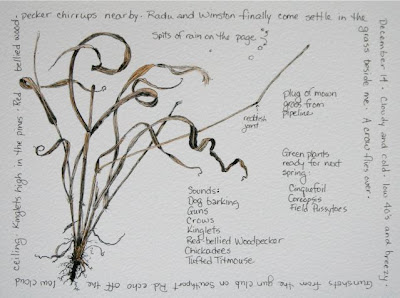 December 14 · Cloudy and cold · low 40's and breezy ·
Gunshots from the gun club on Southport Rd echo off the low cloud
ceiling · Kinglets high in the pines · Red bellied wood-
pecker chirrups nearby · Radu and Winston finally come settle in the
grass beside me · A crow flies over ·
Spits of rain on the page
plug of mown
grass from
pipeline
reddish
joint
Green plants
ready for next
spring
Cinquefoil
Coreopsis
Field Pussytoes
Sounds:
Dog barking
Guns
Crows
Kinglets
Red-bellied Woodpecker
Chickadees
Tufted Titmouse